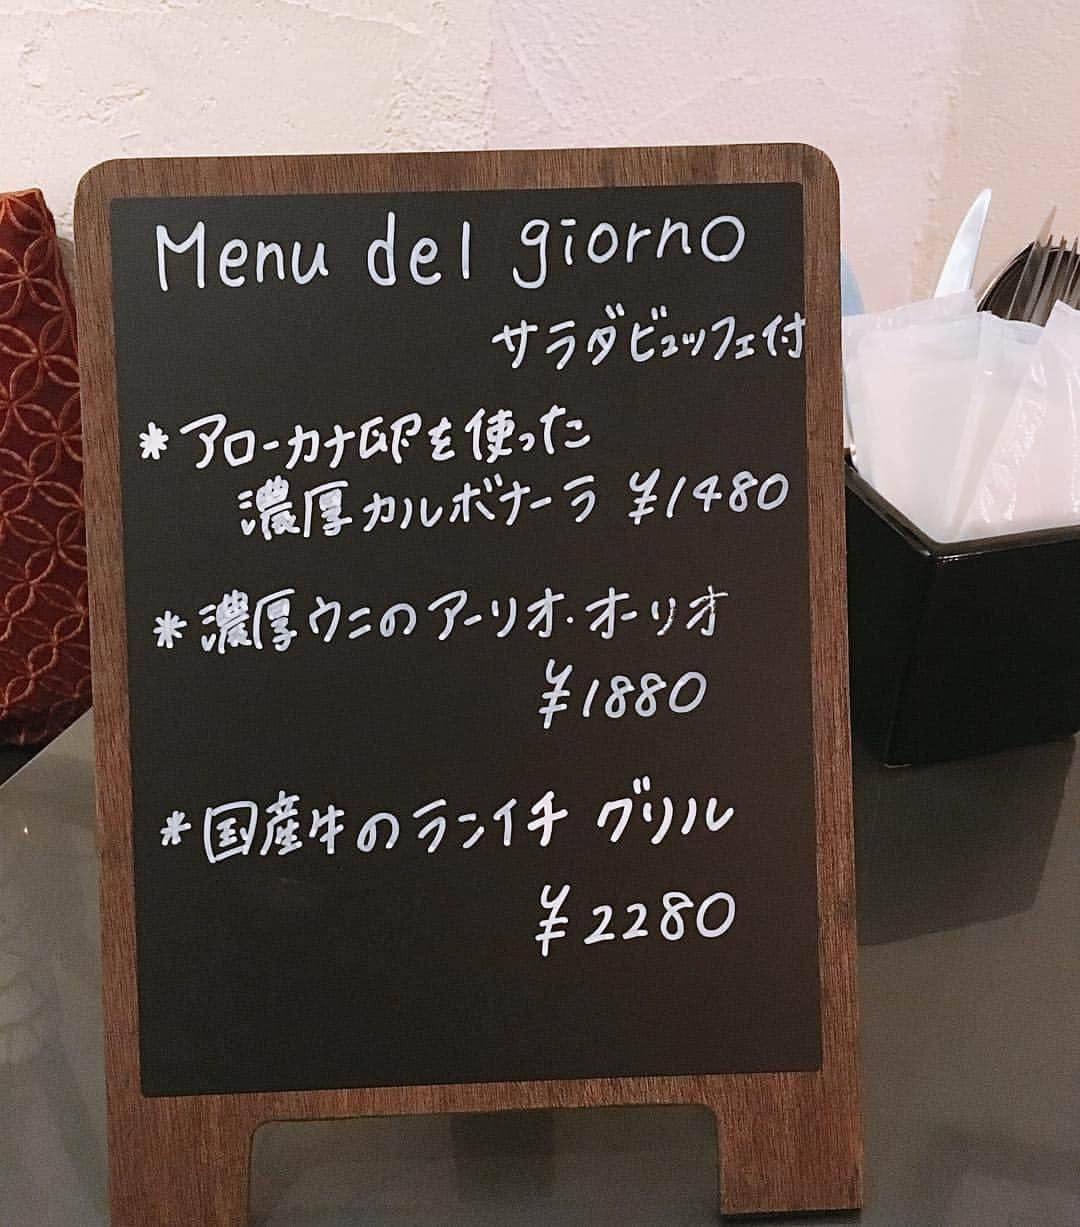 Menu del giorno
サラダビュッフェ付
* アローカナ卵を使った
濃厚カルボナーラ ¥1480
* 濃厚ウニのアーリオ・オーリオ
¥1880
* 国産牛のランイチ グリル
¥2280